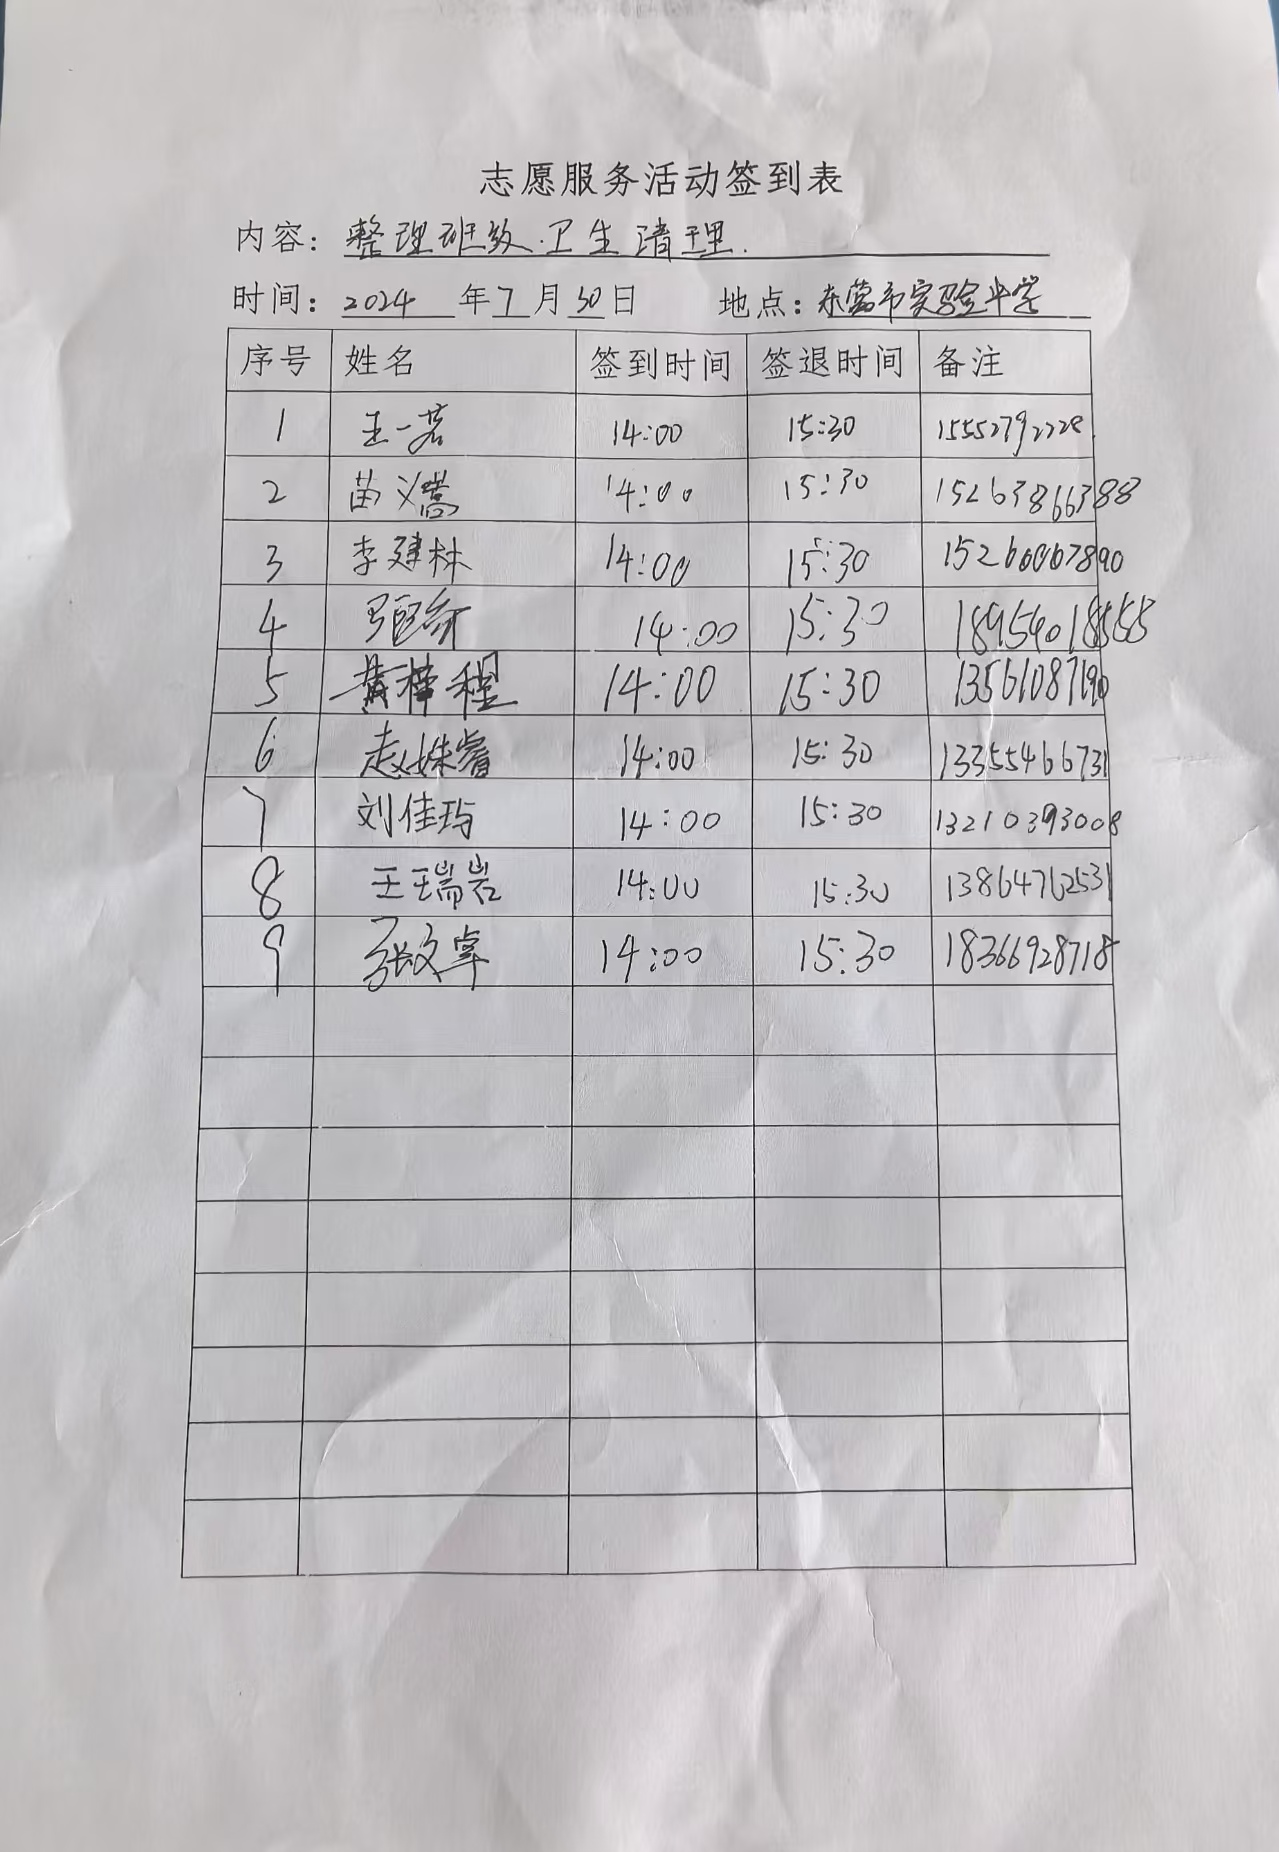 志愿服务活动签到表
内容：整理班级.卫生清理.
时间：2024年7月30日 地点：东营市实验中学
序号 姓名 签到时间 签退时间 备注
1 王一茗 14:00 15:30 15552792228
2 苗义嵩 14:00 15:30 15263866388
3 李建林 14:00 15:30 15266067890
4 14:00 15:30 18954018555
5 黄梓程 14:00 15:30 13561087190
6 赵姝睿 14:00 15:30 13355466731
7 刘佳玙 14:00 15:30 13210393008
8 王瑞岩 14:00 15:30 13864762531
9 张文卓 14:00 15:30 18366928718